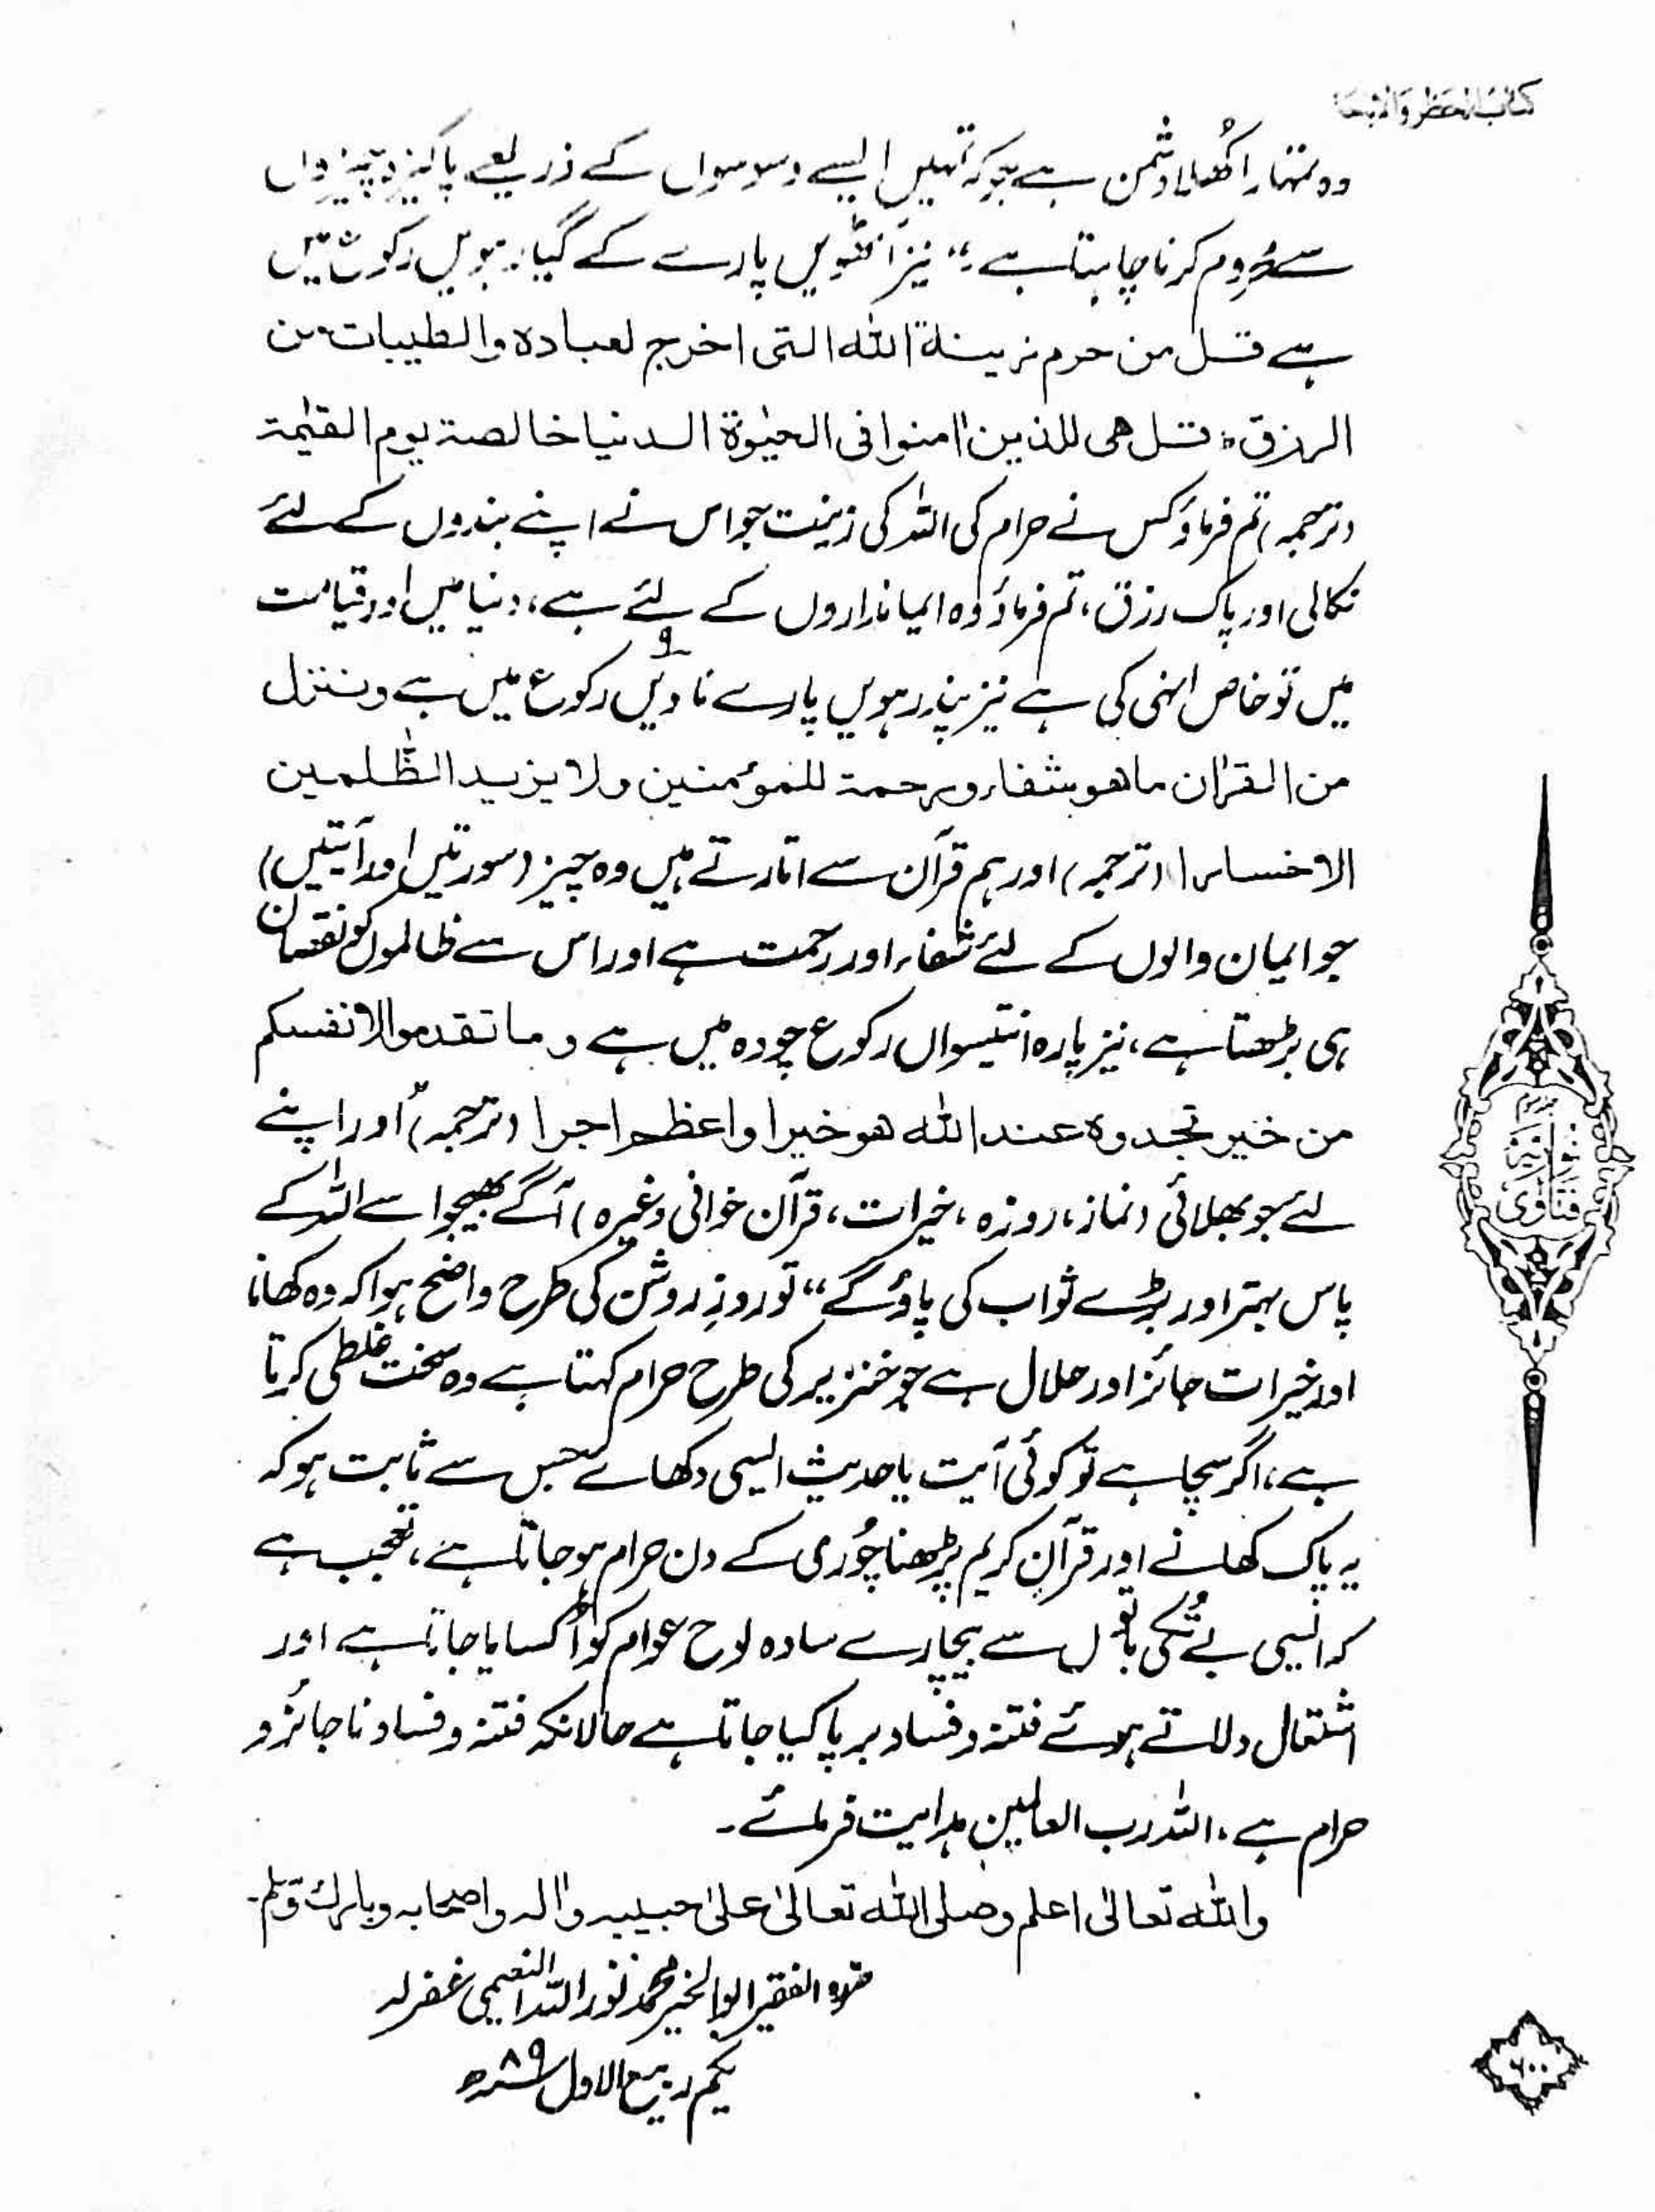 کتاب الحظر والاباحۃ
وہ تمہارا کھلا دشمن ہے جو کہ تمہیں ایسے وسوسوں کے ذریعے پاکیزہ چیزوں
سے محروم کرنا چاہتا ہے،“ نیز آٹھویں پارے کے گیارہویں رکوع میں
ہے قل من حرم زینۃ اللہ التی اخرج لعبادہ والطیبات من
الرزق ط قل ھی للذین اٰمنوا فی الحیٰوۃ الدنیا خالصۃ یوم القیٰمۃ
(ترجمہ) تم فرماؤ کس نے حرام کی اللہ کی زینت جو اس نے اپنے بندوں کے لئے
نکالی اور پاک رزق، تم فرماؤ وہ ایمانداروں کے لئے ہے، دنیا میں اور قیامت
میں تو خاص انہی کی ہے نیز پندرہویں پارے ناویں ۹ رکوع میں ہے وننزل
من القراٰن ماھو شفاء ورحمۃ للمؤمنین ولا یزید الظّٰلمین
الا خسارا (ترجمہ) اور ہم قرآن سے اتارتے ہیں وہ چیز (سورتیں اور آیتیں)
جو ایمان والوں کے لئے شفاء اور رحمت ہے اور اس سے ظالموں کو نقصان
ہی بڑھتا ہے، نیز پارہ انتیسواں رکوع چودہ میں ہے وما تقدموا لانفسکم
من خیر تجدوہ عند اللہ ھو خیرا واعظم اجرا (ترجمہ) ”اور اپنے
لئے جو بھلائی (نماز، روزہ، خیرات، قرآن خوانی وغیرہ) آگے بھیجو اسے اللہ کے
پاس بہتر اور بڑے ثواب کی پاؤ گے“ تو روزِ روشن کی طرح واضح ہوا کہ وہ کھانا
اور خیرات جائز اور حلال ہے جو خنزیر کی طرح حرام کہتا ہے وہ سخت غلطی کرتا
ہے، اگر سچا ہے تو کوئی آیت یا حدیث ایسی دکھائے جس سے ثابت ہو کہ
یہ پاک کھانے اور قرآن کریم پڑھنا چُوری کے دن حرام ہو جاتا ہے، تعجب ہے
کہ ایسی بے تُکی باتوں سے بیچارے سادہ لوح عوام کو اُکسایا جاتا ہے اور
اشتعال دلاتے ہوئے فتنہ و فساد برپا کیا جاتا ہے حالانکہ فتنہ و فساد ناجائز و
حرام ہے، اللہ رب العالمین ہدایت فرمائے۔
واللہ تعالیٰ اعلم وصلی اللہ تعالیٰ علیٰ حبیبہ واٰلہ واصحابہ وبارک وسلم۔
حررہ الفقیر ابو الخیر محمد نور اللہ النعیمی غفرلہ
یکم ربیع الاول ۸۹ھ
فتاویٰ نوریہ
۶۰۰